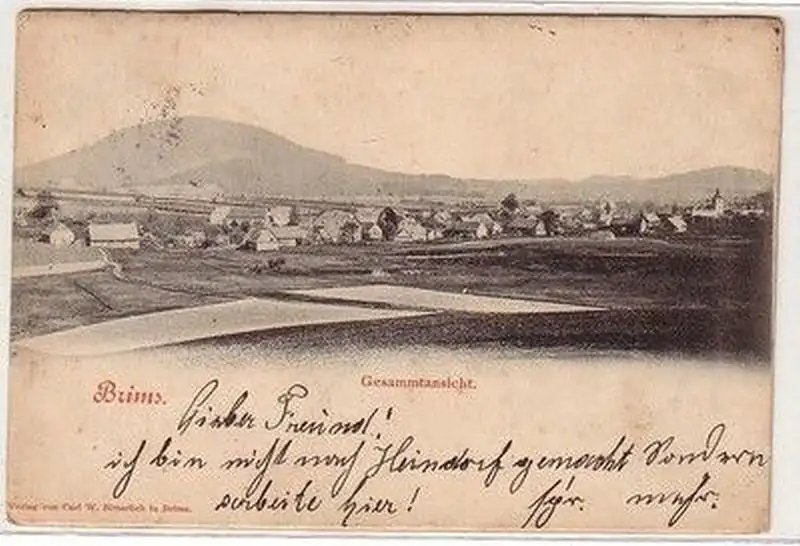 Gesammtansicht.
Brims.
Lieber Freund!
ich bin nicht nach Heindorf gemacht Sondern
arbeite hier! mehr.
Verlag von Carl W. in Brims.